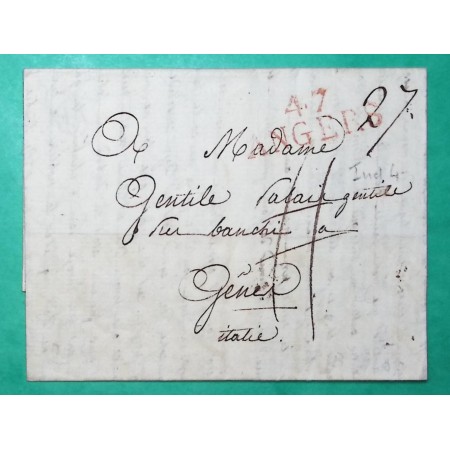 47
ANGERS
27
A Madame
Ind 4
Gentile Palais gentile
banchi a
Gênes
italie.